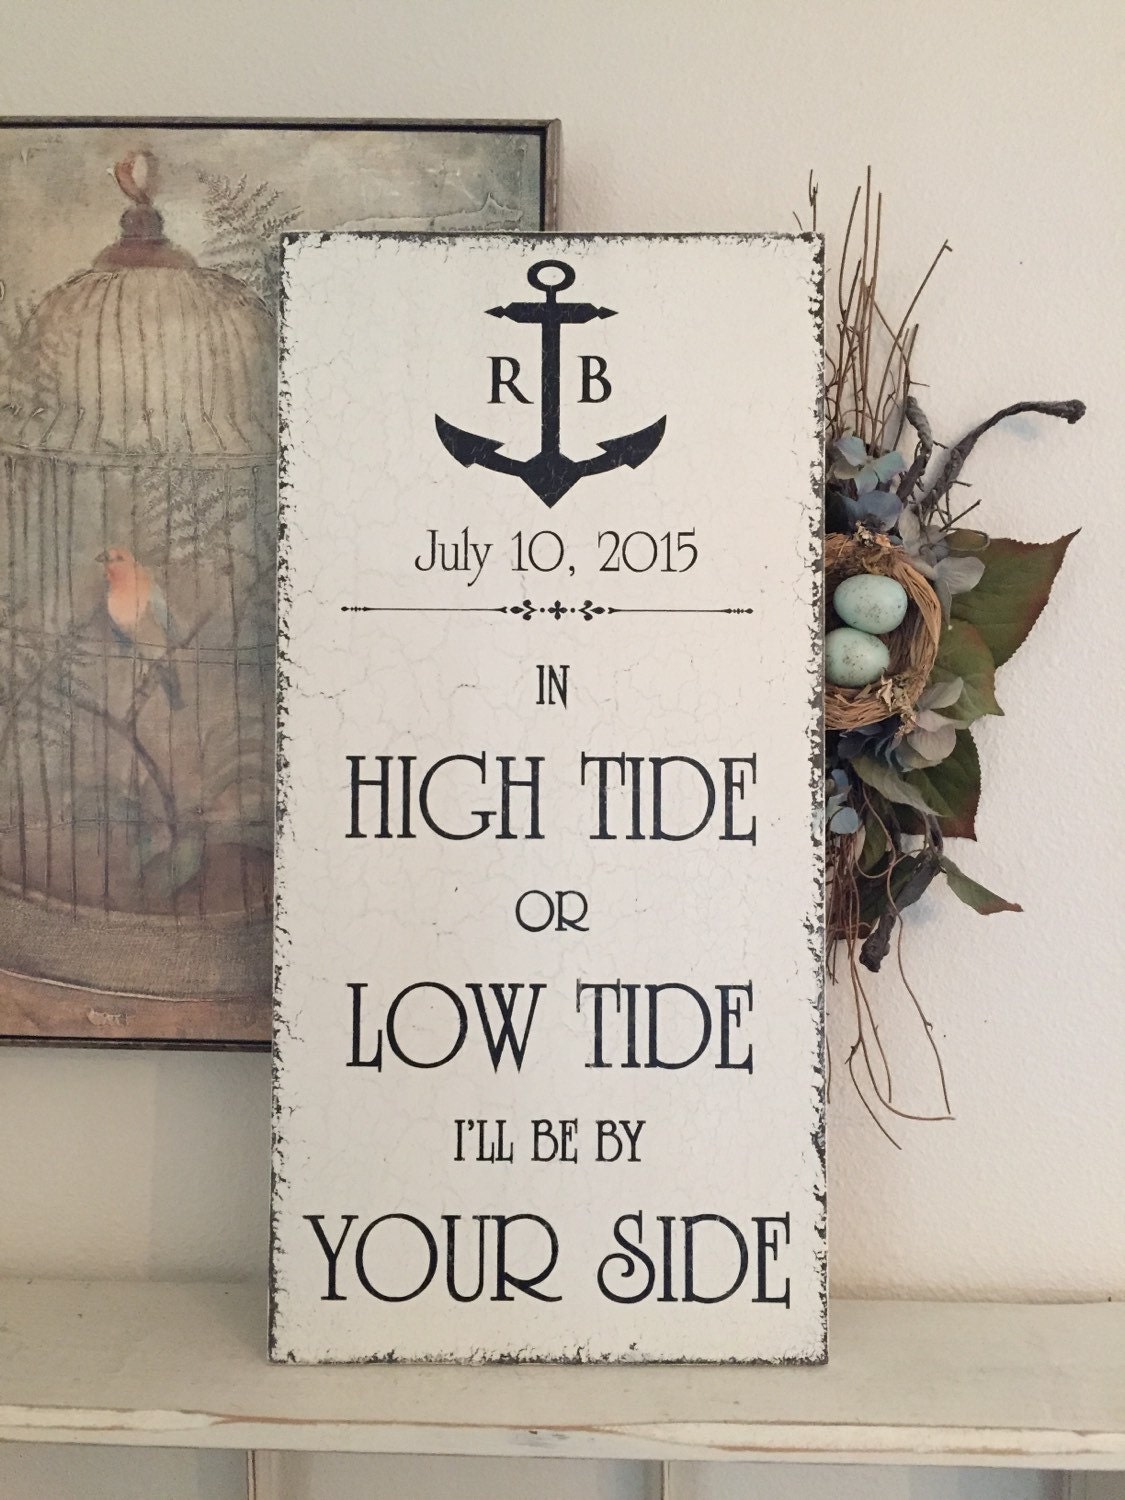 R B
July 10, 2015
IN
HIGH TIDE
OR
LOW TIDE
I'LL BE BY
YOUR SIDE